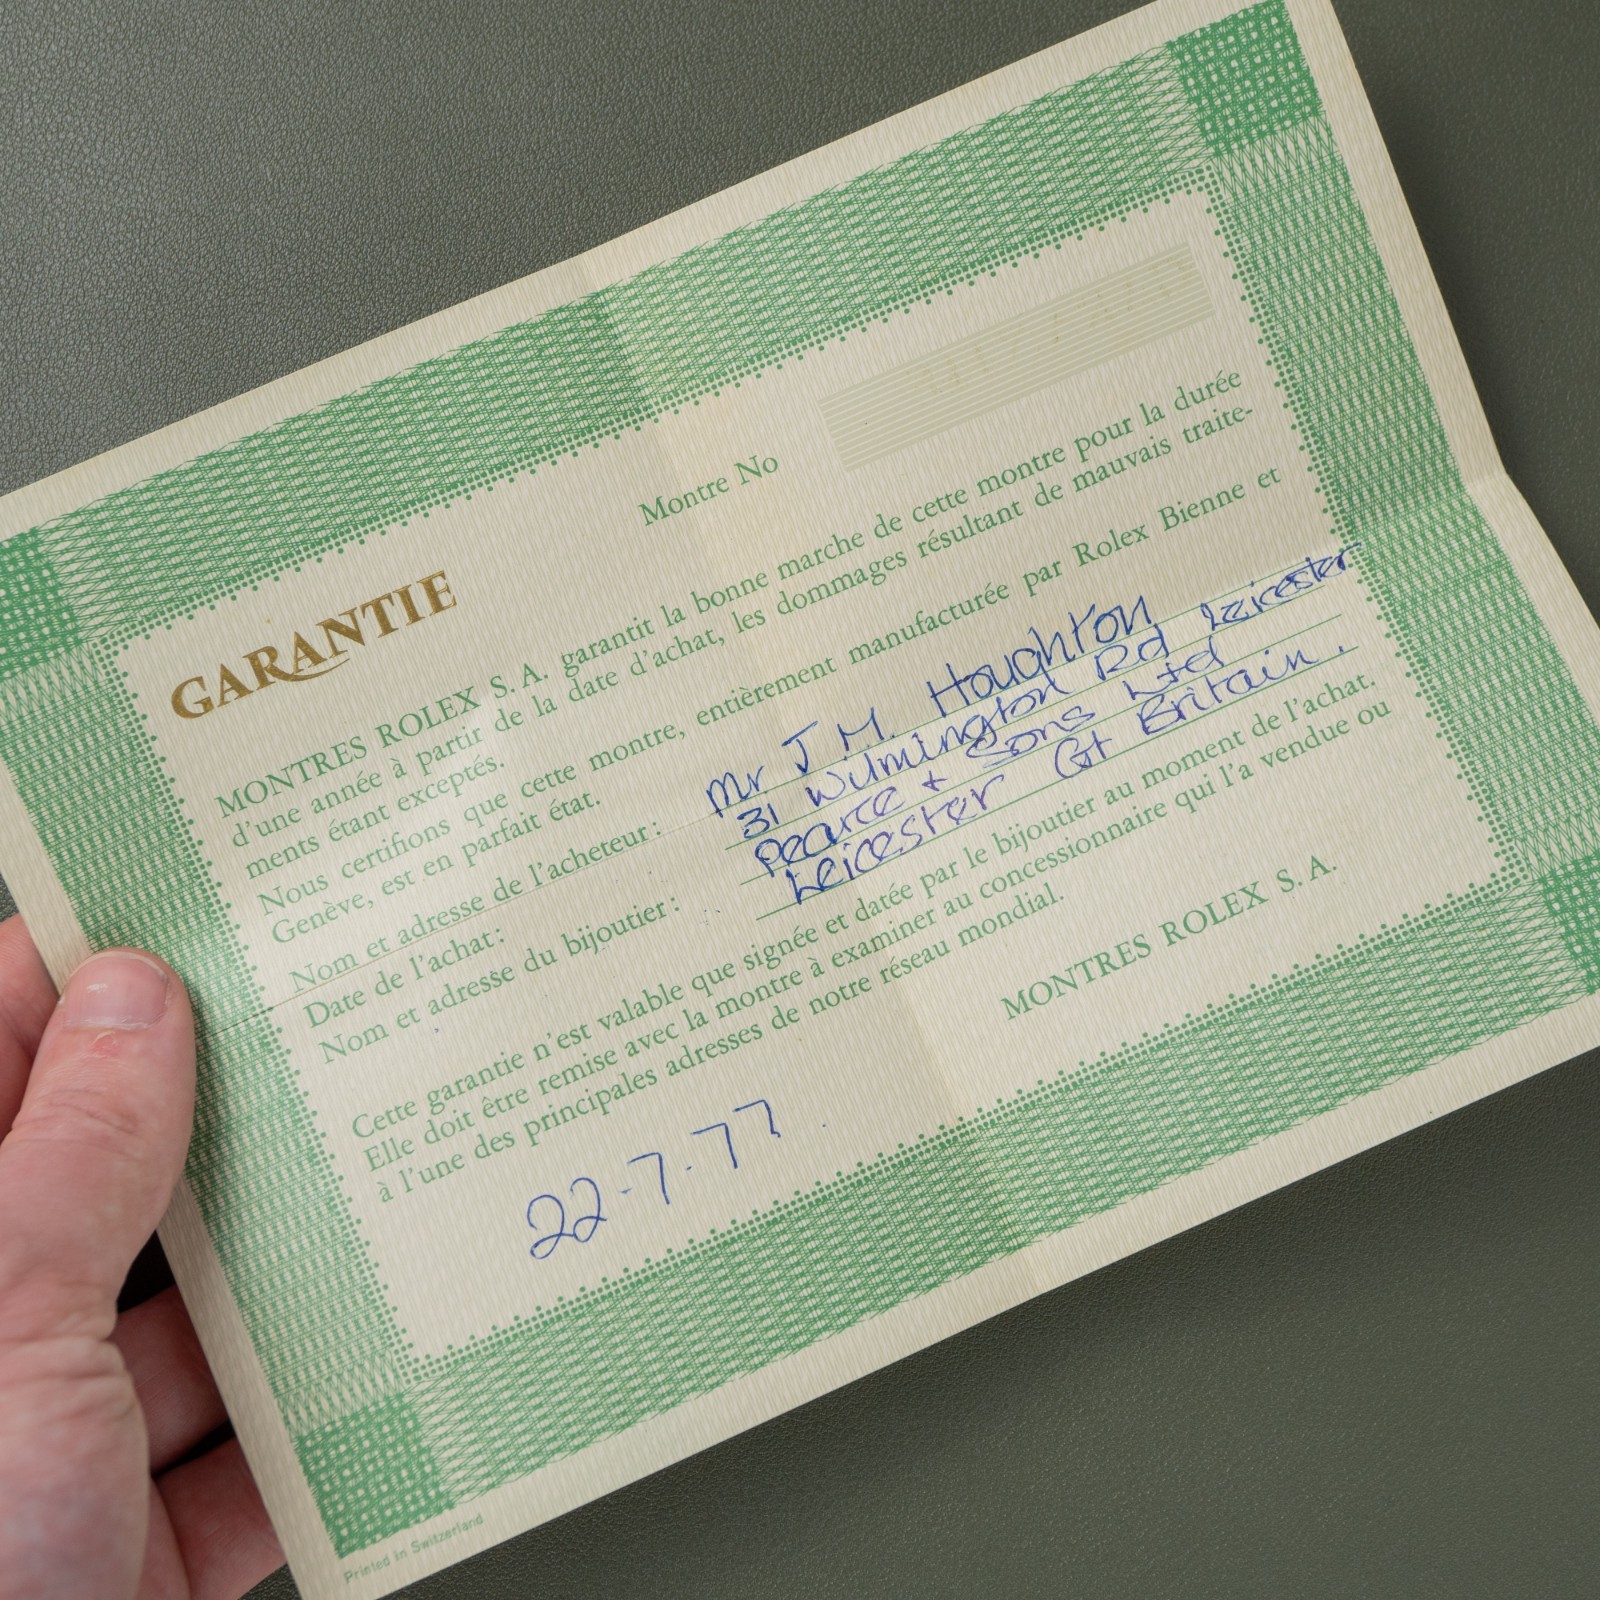 Montre No
GARANTIE
MONTRES ROLEX S. A. garantit la bonne marche de cette montre pour la durée
d'une année à partir de la date d'achat, les dommages résultant de mauvais traite-
ments étant exceptés.
Nous certifions que cette montre, entièrement manufacturée par Rolex Bienne et
Genève, est en parfait état.
Nom et adresse de l'acheteur: Mr J M. Houghton
31 Wilmington Rd Leicester
Date de l'achat:
Nom et adresse du bijoutier: Pearce + Sons Ltd
Leicester Gt Britain.
Cette garantie n'est valable que signée et datée par le bijoutier au moment de l'achat.
Elle doit être remise avec la montre à examiner au concessionnaire qui l'a vendue ou
à l'une des principales adresses de notre réseau mondial.
MONTRES ROLEX S. A.
22-7-77
Printed in Switzerland